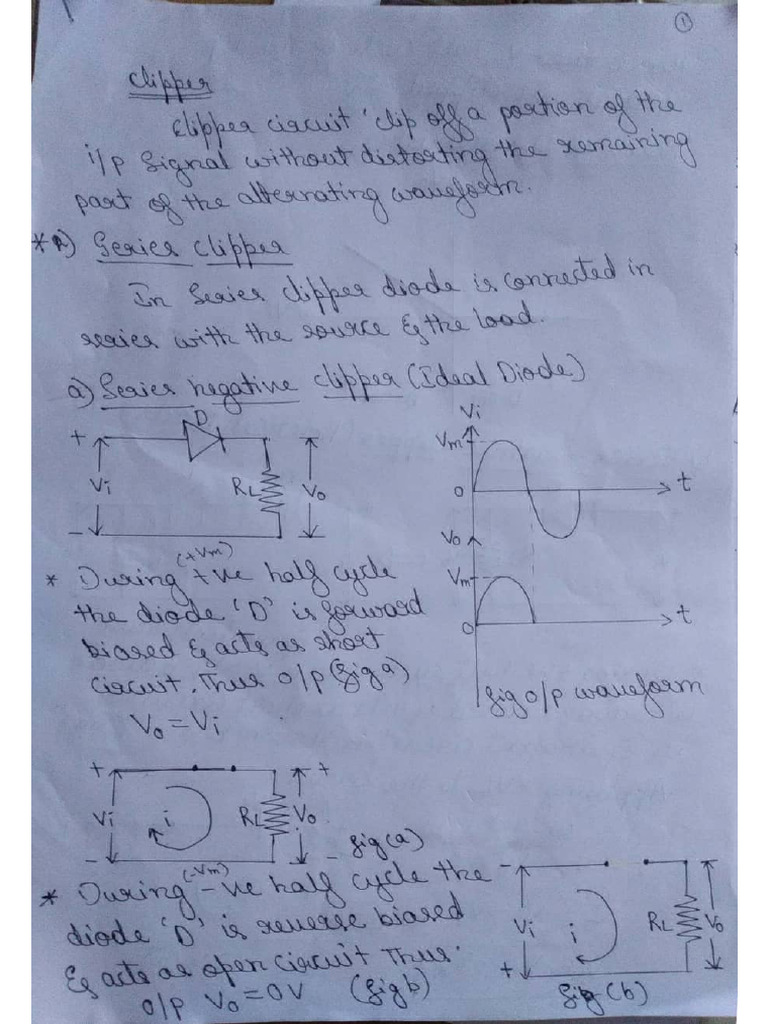 1
Clipper
Clipper circuit 'clip off a portion of the
i/p signal without distorting the remaining
part of the alternating waveform.
* A) Series clipper
In series clipper diode is connected in
series with the source & the load.
a) Series negative clipper (Ideal Diode)
D
+
Vi
RL
Vo
-
Vi
Vm
0
t
Vo
Vm
0
t
fig o/p waveform
(+Vm)
* During +ve half cycle
the diode 'D' is forward
biased & acts as short
circuit. Thus o/p (fig a)
Vo = Vi
+
+
Vi
i
RL
Vo
-
-
fig(a)
(-Vm)
* During -ve half cycle the
diode 'D' is reverse biased
& acts as open circuit Thus.
o/p Vo = 0V (fig b)
-
Vi
i
RL
Vo
+
fig(b)